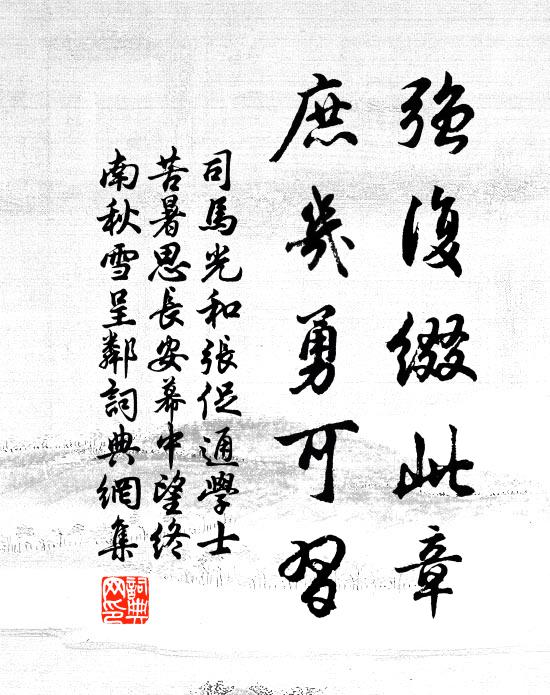 強復綴此章
庶幾勇可習
司馬光和張伲通學士
苦暑思長安幕中望終
南秋雪呈鄰詞典網集
詞典
网印